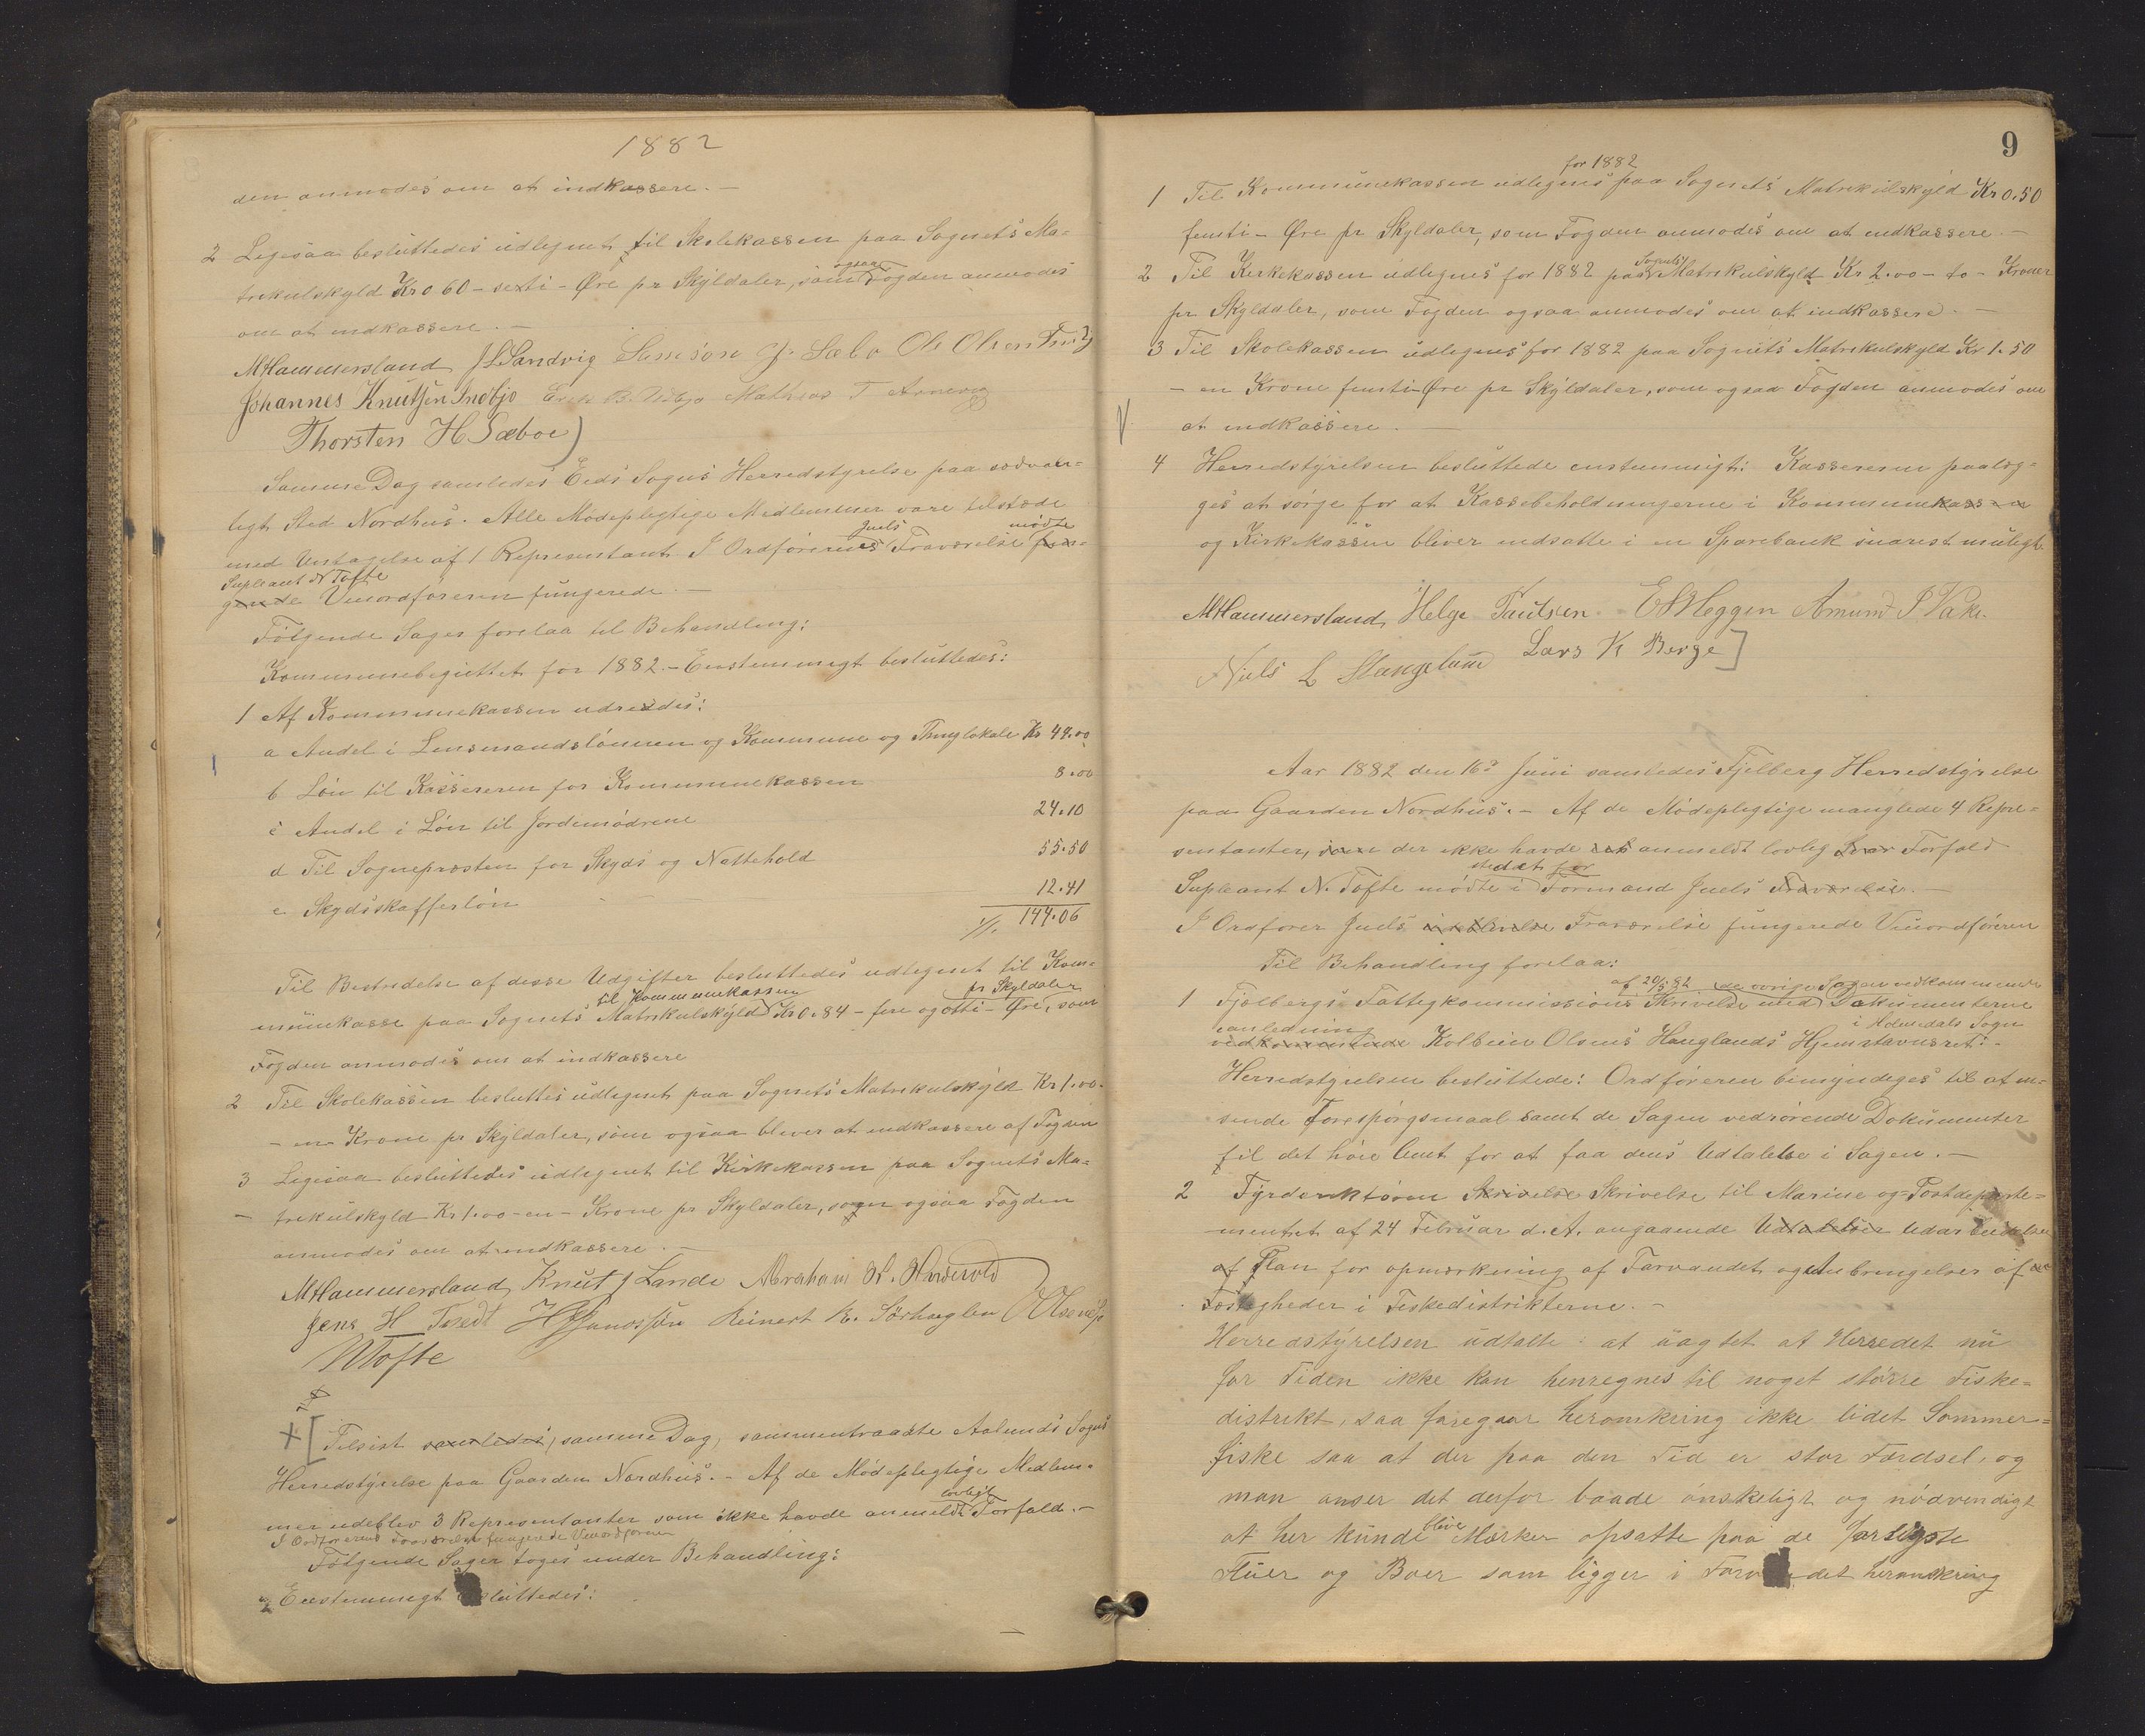 1882
den anmodes om at indkassere. —
2 Ligesaa besluttedes udlignet til Skolekassen paa Sognets Ma-
trekulskyld Kr 0 60 - sexti - Øre pr Skyldaler, som ogsaa Fogden anmodes
om at indkassere. —
MHammersland J L Sandvig Samson J. Sæbø Ole Olsen
Johannes Knutsen Indbjo Erik B. Mathias T Arnevig
Thorsten H Sæboe)
Samme Dag samledes Eids Sogns Herredstyrelse paa sædvan-
ligt Sted Nordhus. Alle Mødepligtige Medlemmer vare tilstæde
med Undtagelse af 1 Representant. I Ordførerens Juels Fraværelse mødte fun-
gerede Supleant N Tofte Viceordføreren fungerede. —
Følgende Sager forelaa til Behandling:
Kommunebegiuttet for 1882. - Eenstemmigt besluttedes:
1 Af Kommunekassen udredes:
a Andel i Lensmandslønnen og Kommune og Thinglokale Kr 44.00
b Løn til Kassereren for Kommunekassen 8.00
c Andel i Løn til Jordemødrene 24.10
d Til Sognepræsten for Skyds og Nattehold 55.50
e Skydsskafferløn 12.41
144.06
Til Bestridelse af disse Udgifter besluttedes udlignet til Kom-
munekasse paa Sognets Matrikulskyld til Kommunekassen Kr 0.84 - fire og otti - Øre pr Skyldaler, som
Fogden anmodes om at indkassere
2 Til Skolekassen besluttes udlignet paa Sognets Matrikulskyld Kr 1.00.
- en Krone pr Skyldaler, som ogsaa bliver at indkassere af Fogden
3 Ligesaa besluttedes udlignet til Kirkekassen paa Sognets Ma-
- trekulskyld Kr 1.00 - en - Krone pr Skyldaler, som ogsaa Fogden
anmodes om at indkassere. —
MHammersland Knut J Lande Abraham
Jens H Tvedt Reinert K. Sørhuglen
N Tofte
Tilsist samledes, samme Dag, sammentraadte Aalunds Sogns
Herredstyrelse paa Gaarden Nordhus. - Af de Mødepligtige Medlem-
mer udeblev 3 Representanter som ikke havde anmeldt lovligt Forfald. -
I Ordførerens Fraværelse fungerede Viceordføreren
Følgende Sager toges under Behandling:
Eenstemmigt besluttedes:
9
1 Til Kommunekassen udlignes for 1882 paa Sognets Matrikulskyld Kr 0.50
femti - Øre pr Skyldaler, som Fogden anmodes om at indkassere. —
2 Til Kirkekassen udlignes for 1882 paa Sognets Matrikulskyld Kr 2.00 - to - Kroner
pr Skyldaler, som Fogden ogsaa anmodes om at indkassere. —
3 Til Skolekassen udlignes for 1882 paa Sognets Matrikulskyld Kr 1.50
- en Krone femti Øre pr Skyldaler, som ogsaa Fogden anmodes om
at indkassere. —
4 Herredstyrelsen besluttede enstemmigt: Kassererne paalæg-
ges at sørge for at Kassebeholdningerne i Kommunekassen
og Kirkekassen bliver indsatte i en Sparebank snarest muligt
MHammersland, Helge Paulsen Amund
Niels L Stangeland Lars K Berge]
Aar 1882 den 16de Juni samledes Fjelberg Herredstyrelse
paa Gaarden Nordhus. - Af de Mødepligtige manglede 4 Repre-
sentanter, som der ikke havde anmeldt lovlig Forfald
Supleant N. Tofte mødte i stedet for Formand Juels Fraværelse. —
I Ordfører Juels Fraværelse fungerede Viceordføreren
Til Behandling forelaa:
1 Fjelbergs Fattigkommissions Skrivelse af 20/5 82 med de øvrige Sagen vedkommende Dokumenterne
vedkommende anledning Kolbein Olsens Hauglands Hjemstavnsret i Homedals Sogn -
Herredstyrelsen besluttede: Ordføreren bemyndiges til at in-
sende Forespørgsmaal samt de Sagen vedrørende Dokumenter
til det høie Amt for at faa dens Udtalelse i Sagen. —
2 Fyrdirektøren Skrivelse Skrivelse til Marine og Postdeparte-
mentet af 24 Februar d. A. angaaende Udtalelse Udarbeidelse
af Plan for opmærkning af Farvandet og Anbringelser af
Fæstigheder i Fiskedistrikterne. —
Herredstyrelsen udtalte: at uagtet at Herredet nu
for Tiden ikke kan henregnes til noget større Fiske-
distrikt, saa foregaar heromkring ikke lidet Sommer-
fiske saa at der paa den Tid er stor Færdsel, og
man anser det derfor baade ønskeligt og nødvendigt
at her kunde blive Mærker opsatte paa de farligste
Fluer og Boer som ligger i Farvandet heromkring